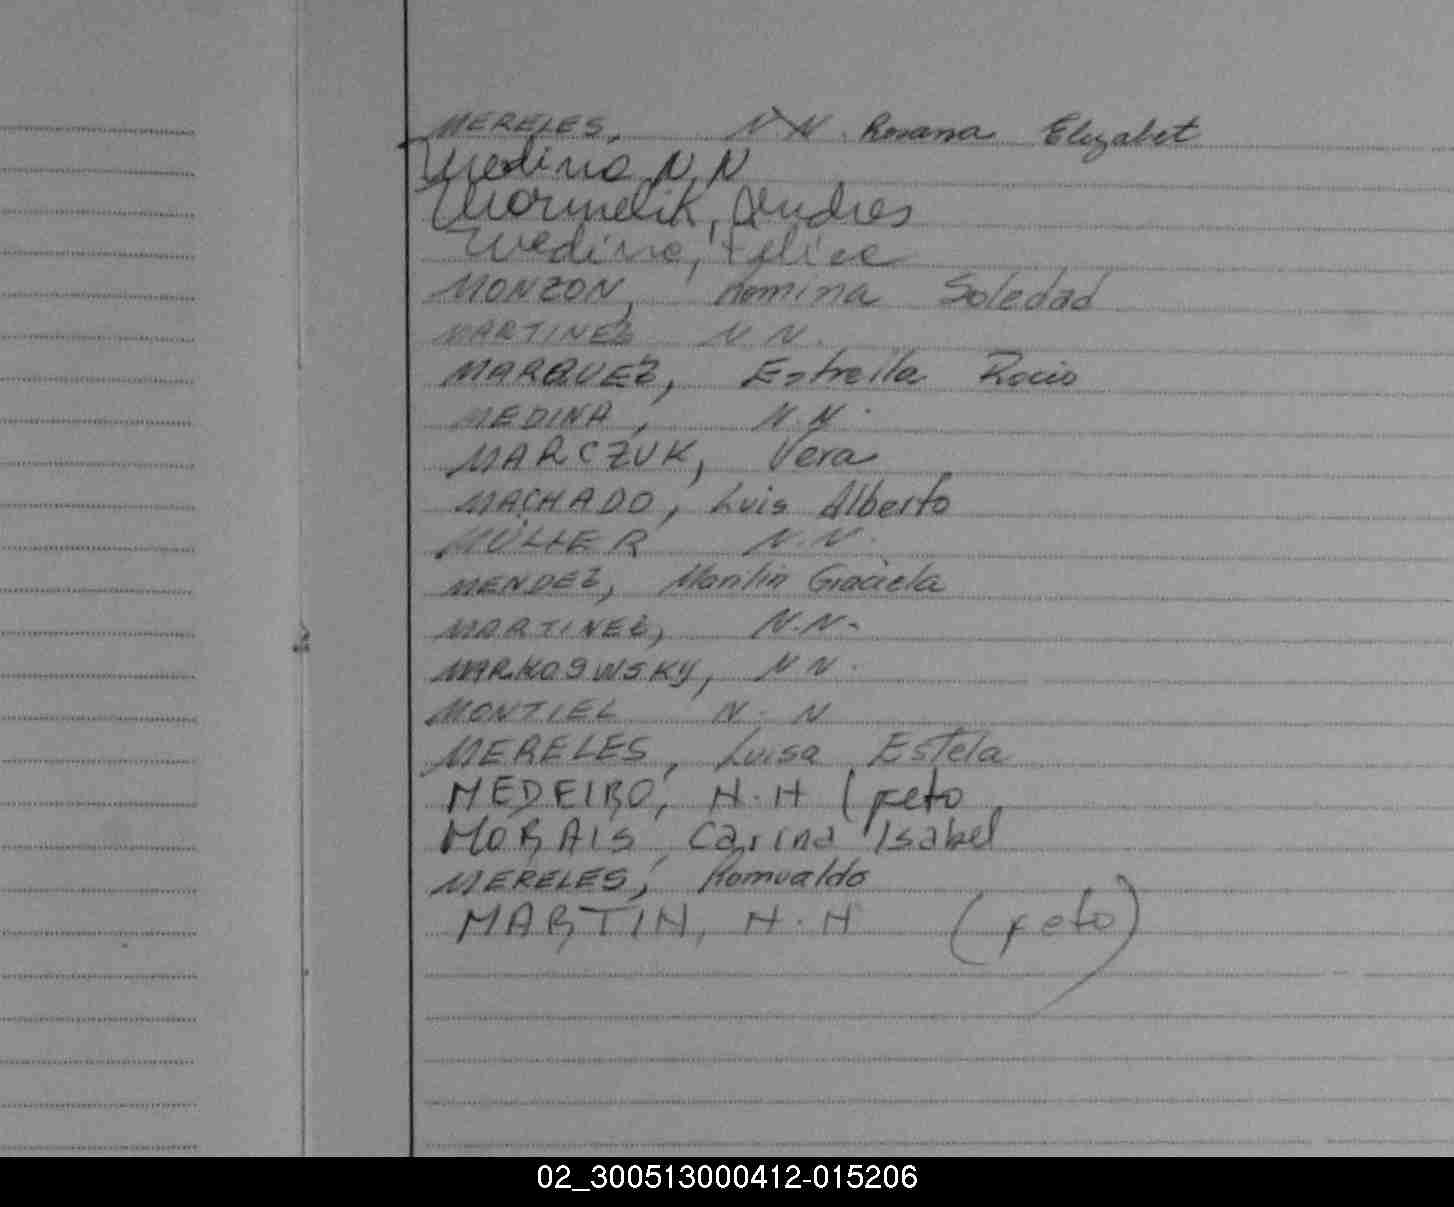 MERELES, N N. Roxana Elizabet
Medina N.N
Mormelik, Andres
Medina, Felisa
MONZON, Romina Soledad
MARTINEZ N.N.
MARQUEZ, Estrella Rocio
MEDINA, N.N.
MARCZUK, Vera
MACHADO, Luis Alberto
MÜLLER N.N.
MENDEZ, Marilin Graciela
MARTINEZ, N.N.
MARKOSWSKY, N N.
MONTIEL N. N
MERELES, Luisa Estela
MEDEIRO, N.N (feto
MORAIS, Carina Isabel
MERELES, Romualdo
MARTIN, N.N (feto)
02_300513000412-015206